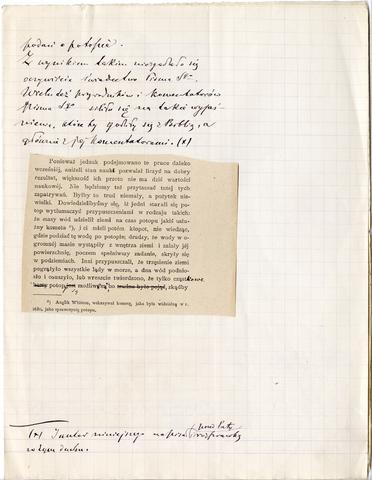 podań o potopie.
Z wynikiem takim niezgadzało się
oczywiście świadectwo Pisma Śgo.
Wielu też przyrodników i komentatorów
Pisma Śgo siliło się na takie wyjaś
nienie, któreby godziły się z Biblią, a
głównie z jej komentatorami. (x)
Ponieważ jednak podejmowano te prace daleko
wcześniej, aniżeli stan nauki pozwalał liczyć na dobry
rezultat, większość ich przeto nie ma dziś wartości
naukowej. Nie będziemy też przytaczać tutaj tych
zapatrywań. Byłby to trud niemały, a pożytek nie-
wielki. Dowiedzielibyśmy się, iż jedni starali się po-
top wytłumaczyć przypuszczeniami w rodzaju takich:
że masy wód udzielił ziemi na czas potopu jakiś usłuż-
ny kometa ²), i ci mieli potem kłopot, nie wiedząc,
gdzie podziać tę wodę po potopie; drudzy, że wody w o-
gromnej masie wystąpiły z wnętrza ziemi i zalały jej
powierzchnię, poczem spełniwszy zadanie, skryły się
w podziemiach. Inni przypuszczali, że trzęsienie ziemi
pogrążyło wszystkie lądy w morze, a dna wód podnio-
sło i osuszyło, lub wreszcie twierdzono, że tylko częstkowy
potop jest możliwy, bo trudno było pojąć, zkądby
²) Anglik Whiston, wskazywał kometę, jako była widzialną w r.
1680, jako sprawczynię potopu.
(x) I autor niniejszego napisał przed laty rozprawkę
w tym duchu.